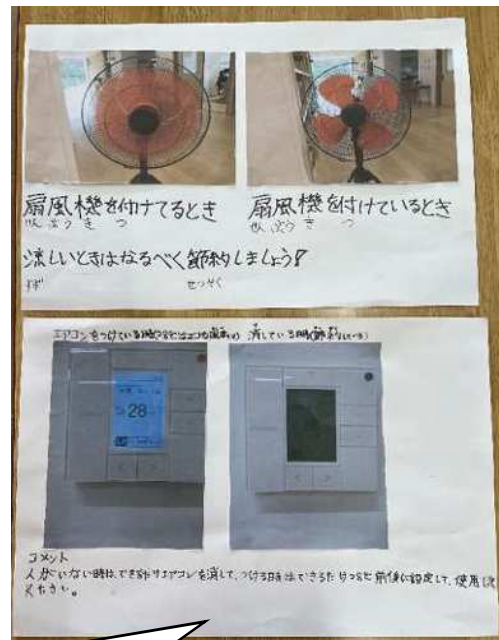 扇風機を付けてるとき
扇風機を付けているとき
涼しいときはなるべく節約しましょう!
すず
せつやく
エアコンをつけている時
消している時
28
コメント
人がいない時は、できるだけエアコンを消して、つける時はできるだけ28℃前後に設定して、使用して
ください。